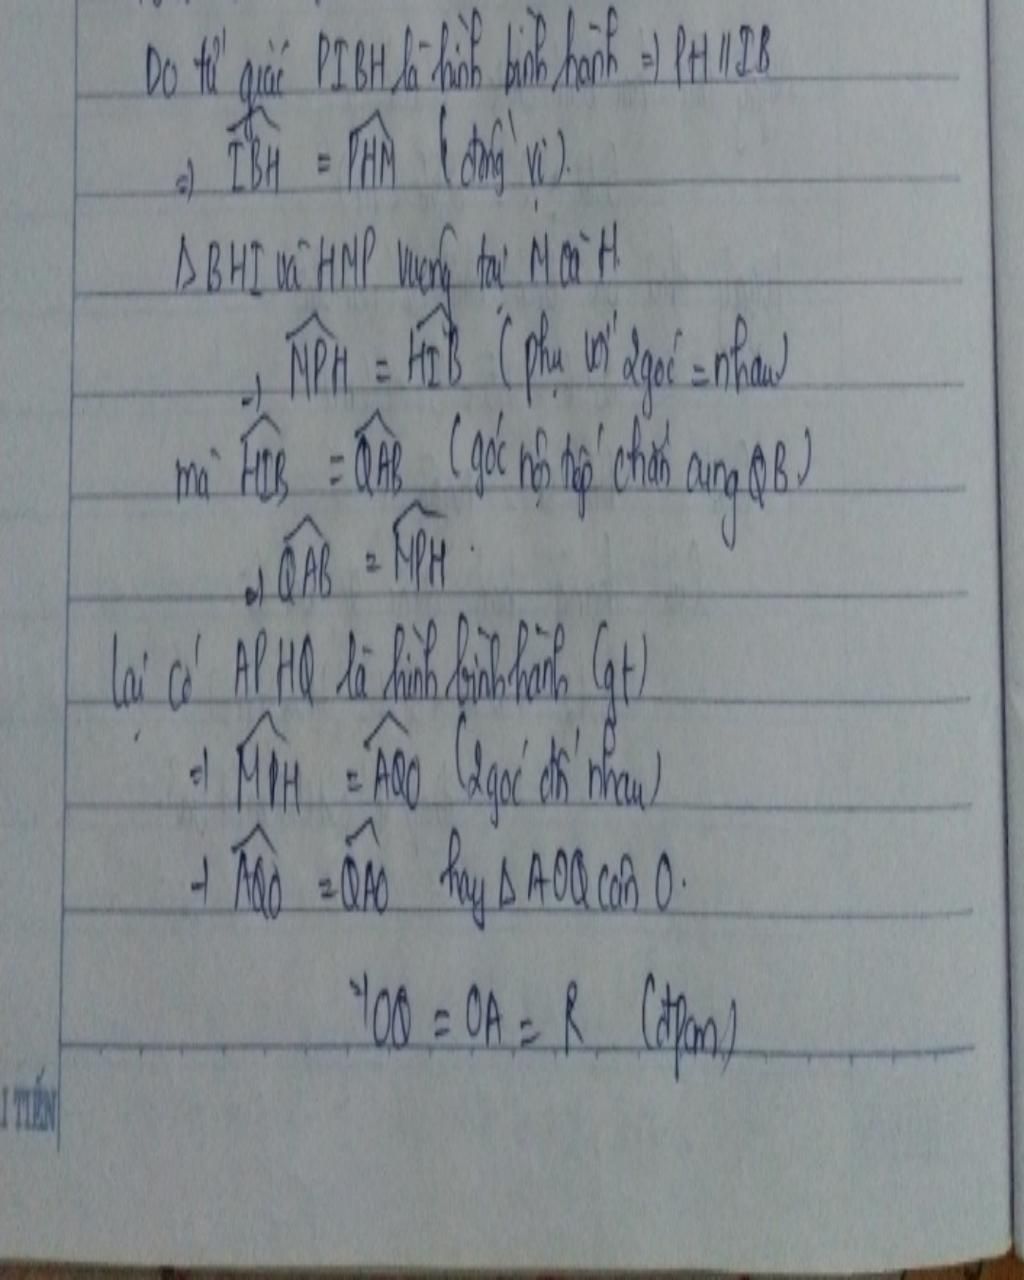 Do tứ giác PIBH là hình bình hành => PH // IB
=> IBH = PHM (đồng vị).
Δ BHI và HMP vuông tại M và H.
=> MPH = HIB (phụ với 2 góc = nhau)
mà HIB = QAB (góc nội tiếp chắn cung QB)
=> QAB = MPH.
lại có APHQ là hình bình hành (gt)
=> MPH = AQO (2 góc đối nhau)
=> AQO = QAO hay Δ AOQ cân O.
=> OQ = OA = R (đpcm)
I TIẾN